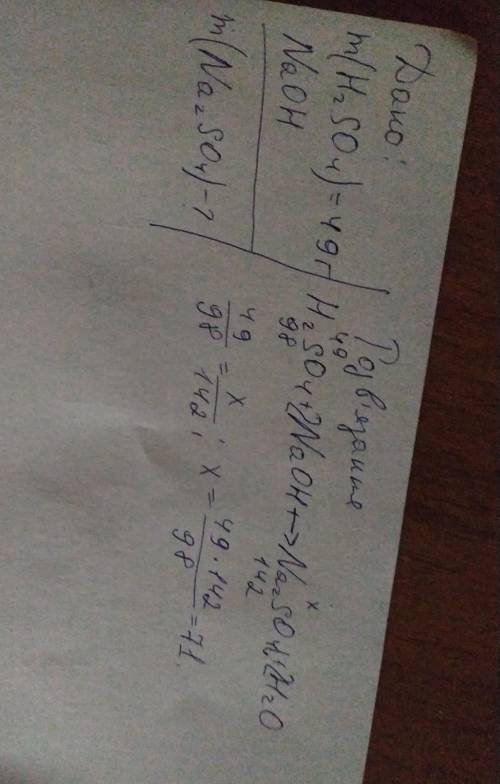 Дано:
m(H₂SO₄)=49г
NaOH
m(Na₂SO₄)-?
Розв'язання
49 x
H₂SO₄+2NaOH→Na₂SO₄+2H₂O
98 142
49/98 = x/142; x = 49·142/98 = 71.